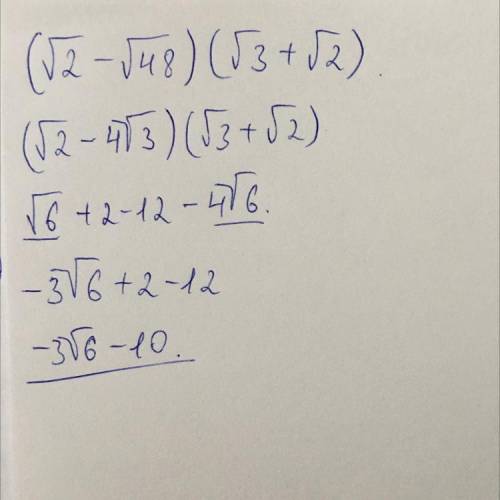 (√2 - √48)(√3 + √2).
(√2 - 4√3)(√3 + √2)
√6 + 2 - 12 - 4√6.
-3√6 + 2 - 12
-3√6 - 10.